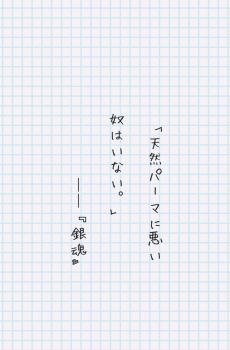 「天然パーマに悪い
奴はいない。」
——『銀魂』